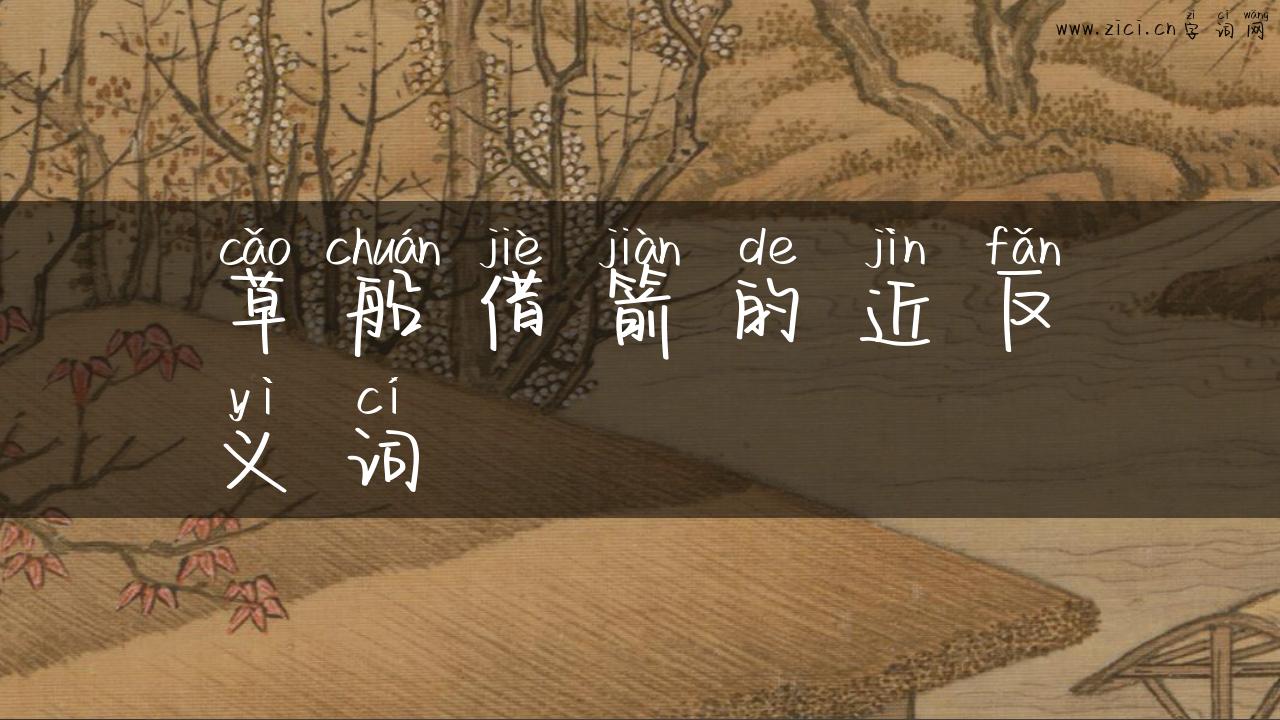 zì cí wǎng
www.zici.cn字词网
cǎo chuán jiè jiàn de jìn fǎn
草船借箭的近反
yì cí
义词